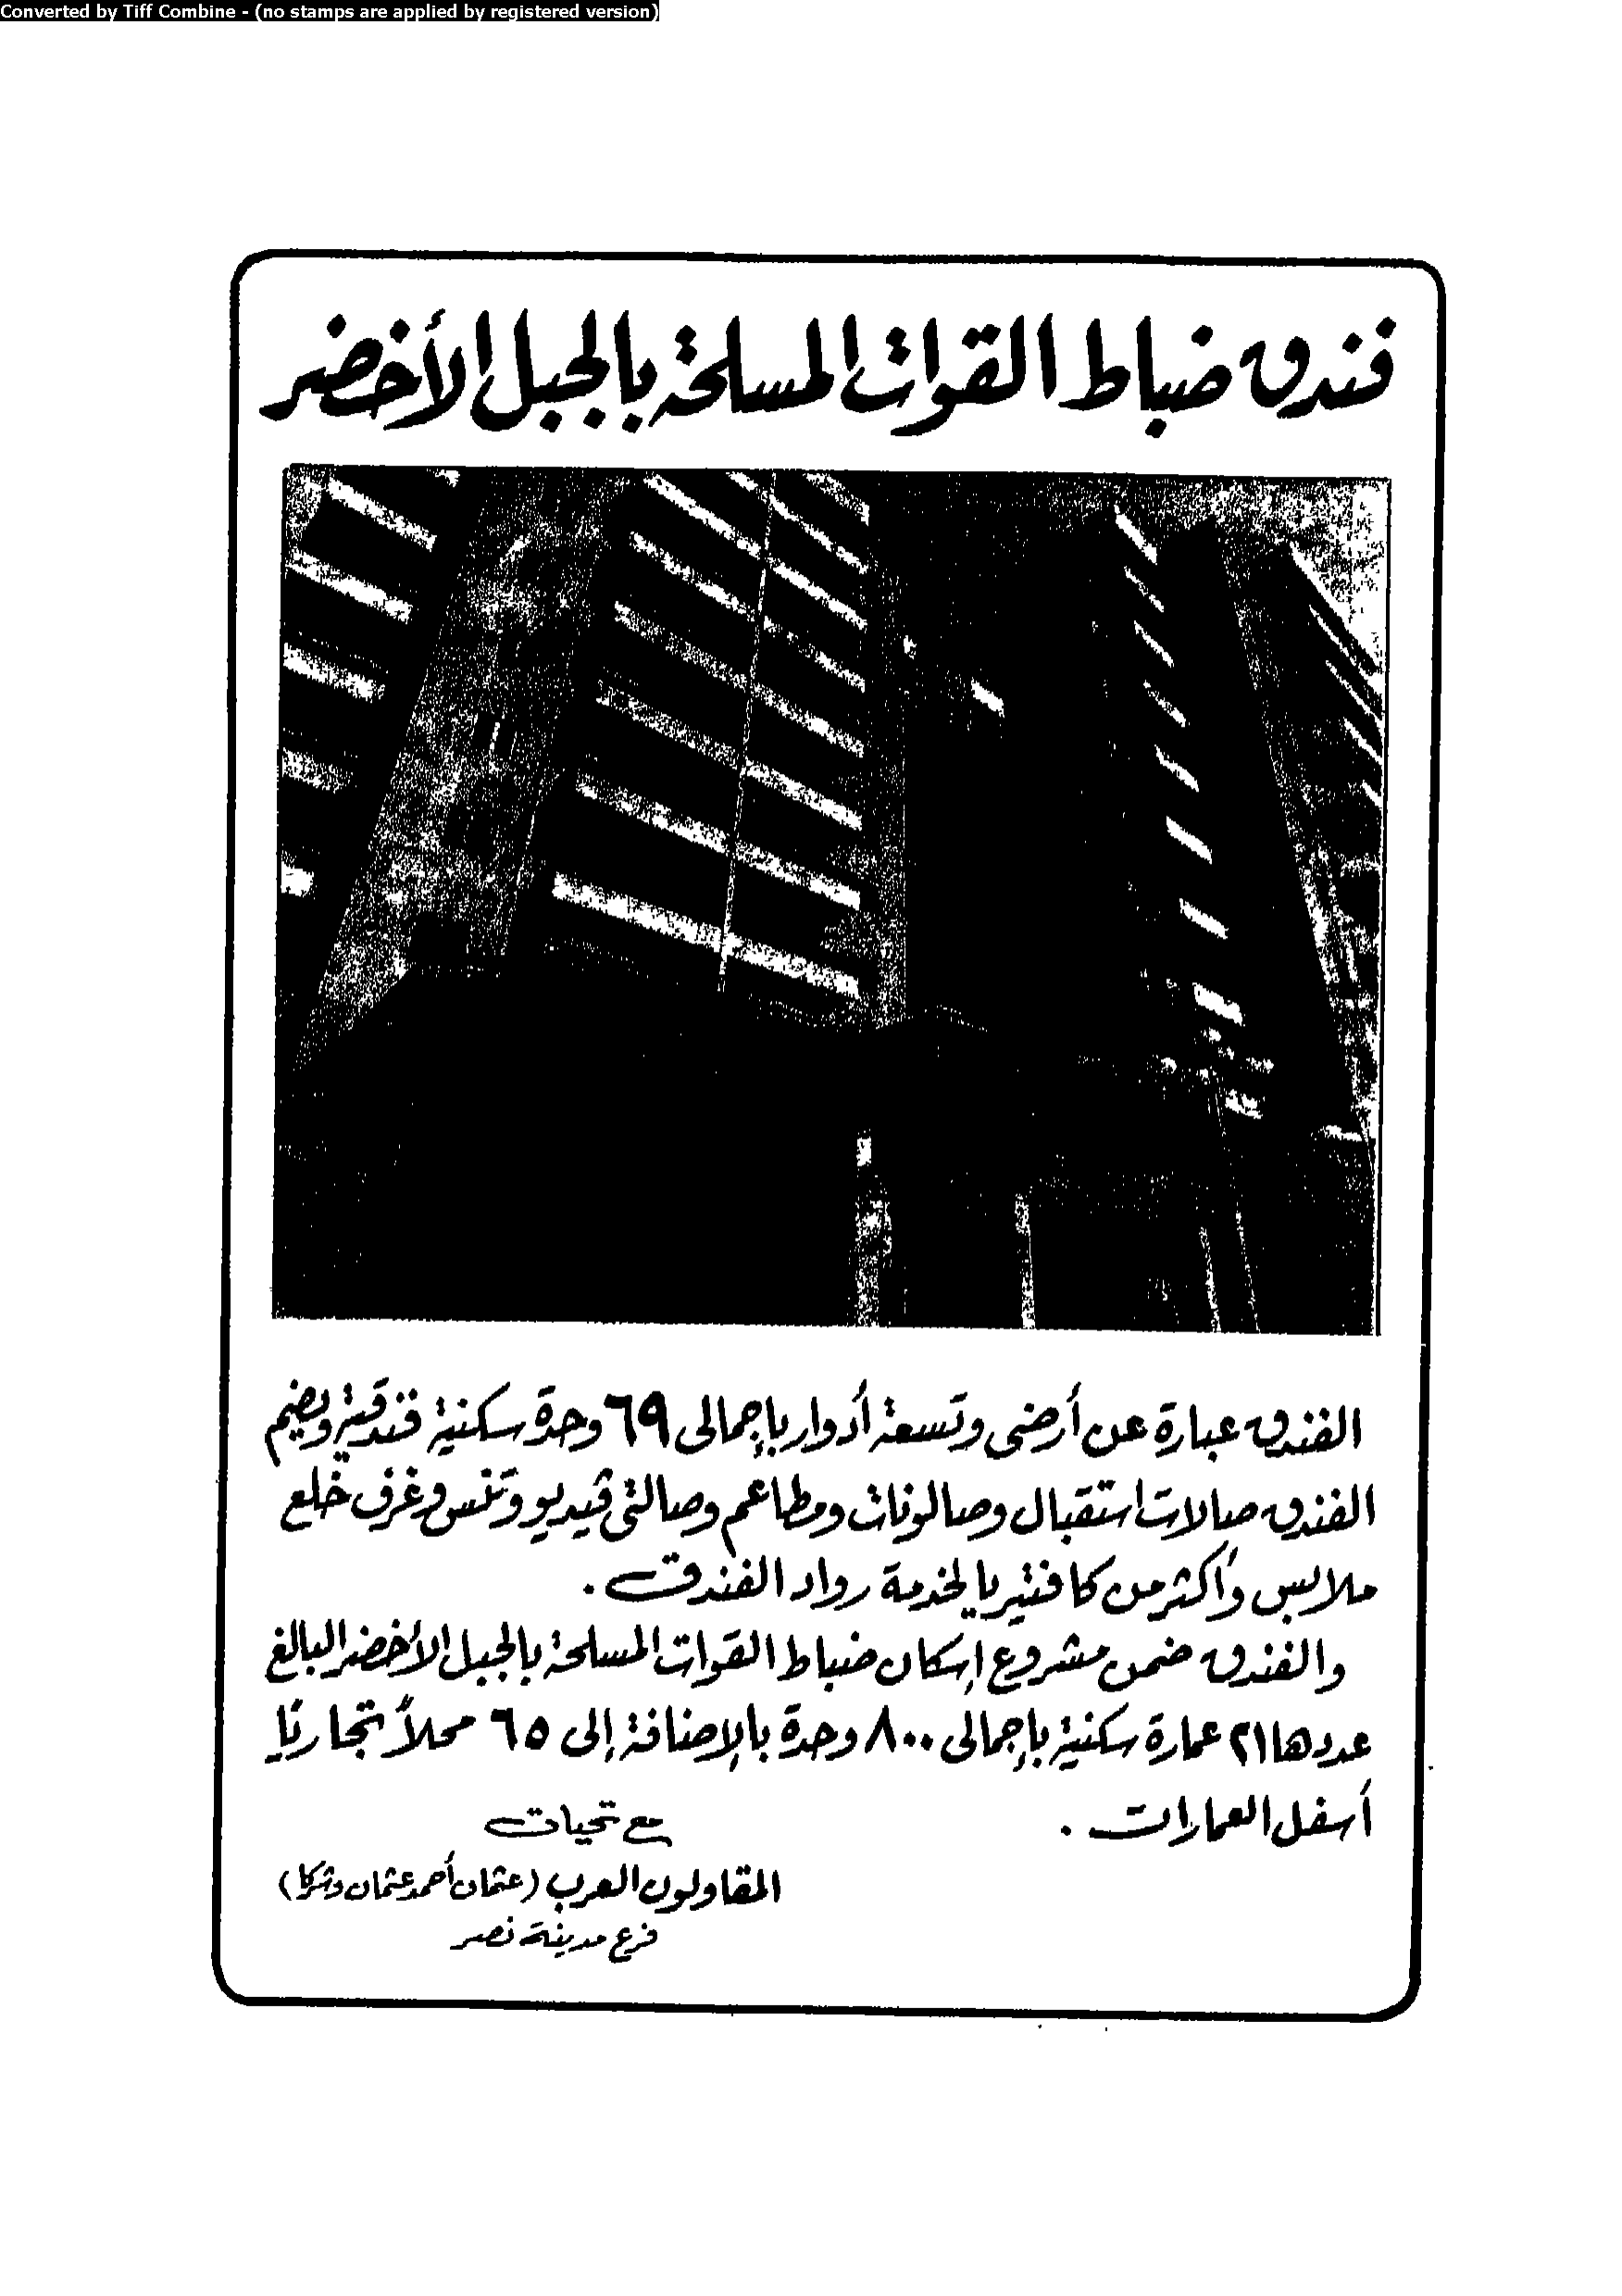 Converted by Tiff Combine - (no stamps are applied by registered version)
فندق ضباط القوات المسلحة بالجبل الأخضر
الفندق عبارة عن أرضى وتسعة أدوار بإجمالى ٦٩ وحدة سكنية فندقية ويضم
الفندق صالات استقبال وصالونات ومطاعم وصالتى ڤيديو وتنس وغرف خلع
ملابس وأكثر من كافتيريا لخدمة رواد الفندق .
والفندق ضمن مشروع إسكان ضباط القوات المسلحة بالجبل الأخضر البالغ
عددها ٢١ عمارة سكنية بإجمالى ٨٠٠ وحدة بالإضافة إلى ٦٥ محلاً تجاريًا
أسفل العمارات .
مع تحيات
المقاولون العرب (عثمان أحمد عثمان وشركا)
فرع مدينة نصر